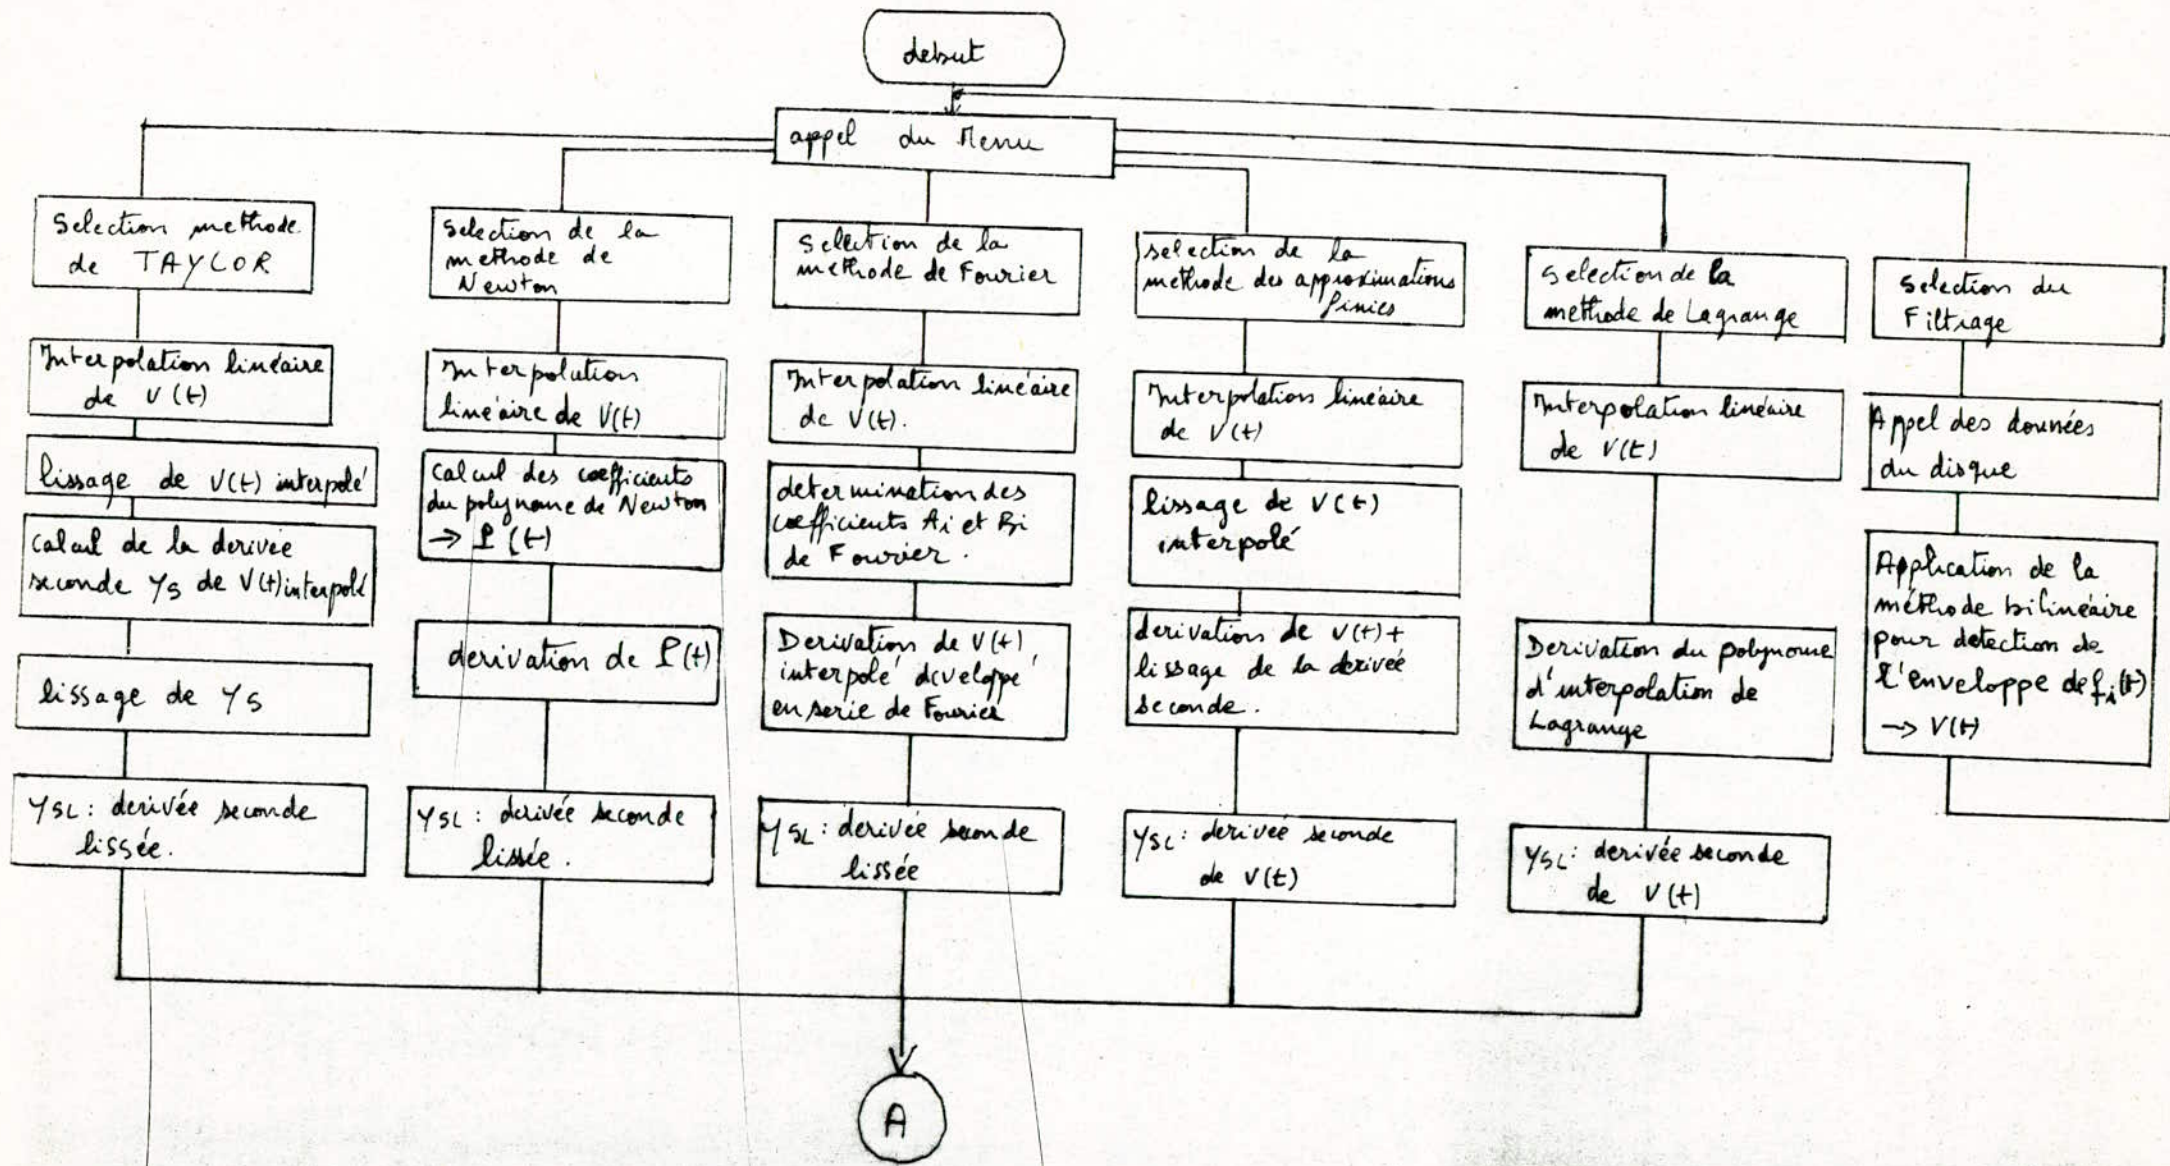 debut
appel du Menu
Selection methode
de TAYLOR
Interpolation linéaire
de V(t)
lissage de V(t) interpolé
calcul de la derivée
seconde YS de V(t) interpolé
lissage de YS
YSL: derivée seconde
lissée.
Selection de la
methode de
Newton
Interpolation
linéaire de V(t)
calcul des coefficients
du polynome de Newton
→ P(t)
derivation de P(t)
YSL: derivée seconde
lissée.
Selection de la
methode de Fourier
Interpolation linéaire
de V(t).
determination des
coefficients Ai et Bi
de Fourier.
Derivation de V(t)
interpolé développé
en serie de Fourier
YSL: derivée seconde
lissée
selection de la
methode des approximations
finies
Interpolation linéaire
de V(t)
lissage de V(t)
interpolé
derivations de V(t)+
lissage de la derivée
seconde.
YSL: derivée seconde
de V(t)
selection de la
methode de Lagrange
Interpolation linéaire
de V(t)
Derivation du polynome
d'interpolation de
Lagrange
YSL: derivée seconde
de V(t)
Selection du
Filtrage
Appel des données
du disque
Application de la
méthode bilinéaire
pour detection de
l'enveloppe de fi(t)
→ V(t)
A